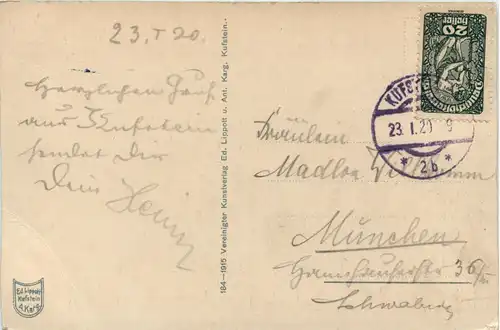 23. I 20.
Herzlichen Gruß
aus Kufstein
sendet Dir
Dein Heinz
184–1915 Vereinigter Kunstverlag Ed. Lippott u. Ant. Karg, Kufstein.
Ed. Lippott
Kufstein
A. Karg
20
Heller
Deutschösterreich
KUFST
23. I. 20
* 2b *
Fräulein
Madlon
München
36/
Schwabing